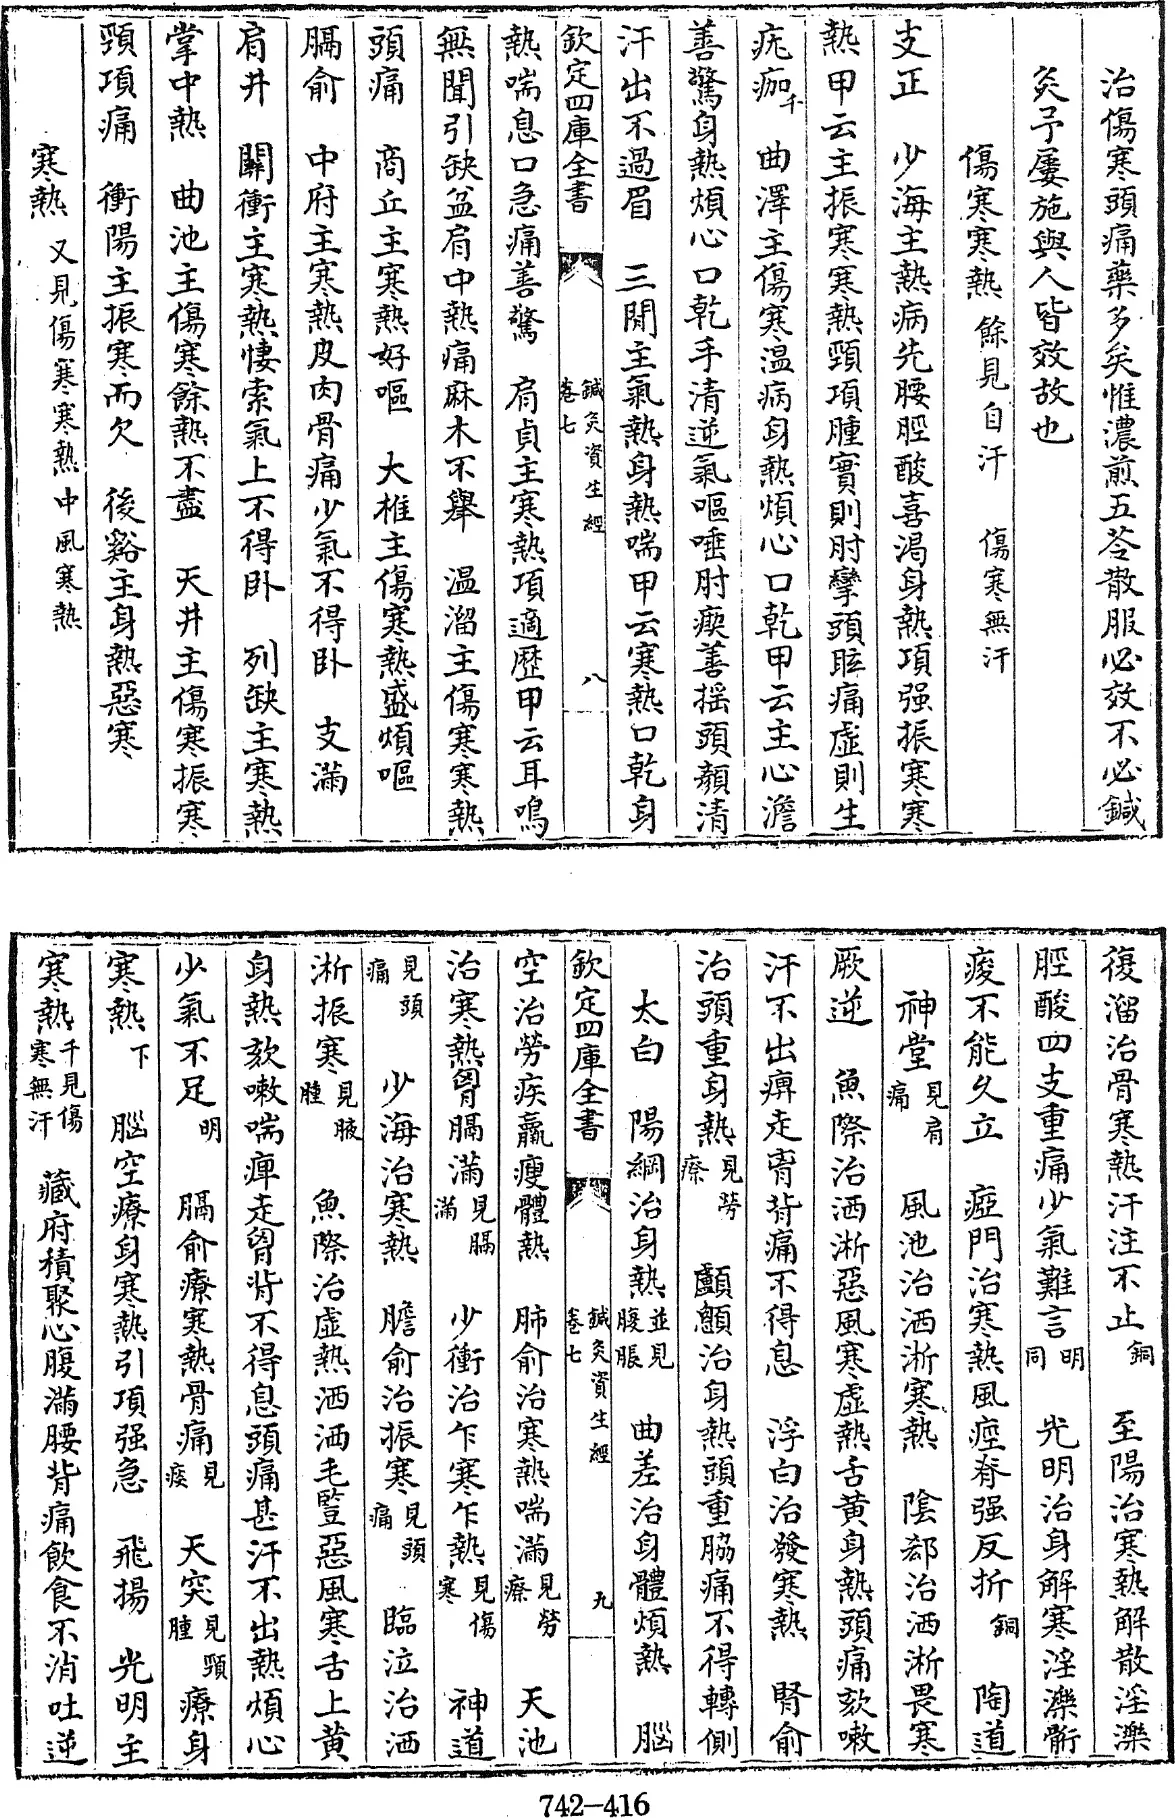 治傷寒頭痛藥多矣惟濃煎五苓散服必效不必鍼
灸予屢施與人皆效故也
傷寒寒熱 餘見自汗 傷寒無汗
支正 少海主熱病先腰脛酸喜渴身熱項强振寒寒
熱甲云主振寒寒熱頸項腫實則肘攣頭眩痛虛則生
疣痂千 曲澤主傷寒温病身熱煩心口乾甲云主心澹
善驚身熱煩心口乾手清逆氣嘔唾肘瘈善揺頭顔清
汗出不過眉 三閒主氣熱身熱喘甲云寒熱口乾身
欽定四庫全書 鍼灸資生經 卷七 八
熱喘息口急痛善驚 肩貞主寒熱項適歴甲云耳鳴
無聞引缺盆肩中熱痛麻木不舉 温溜主傷寒寒熱
頭痛 商丘主寒熱好嘔 大椎主傷寒熱盛煩嘔
膈俞 中府主寒熱皮肉骨痛少氣不得卧 支滿
肩井 關衝主寒熱悽索氣上不得卧 列缺主寒熱
掌中熱 曲池主傷寒餘熱不盡 天井主傷寒振寒
頸項痛 衝陽主振寒而欠 後谿主身熱惡寒
寒熱 又見傷寒寒熱 中風寒熱
復溜治骨寒熱汗注不止銅 至陽治寒熱解散淫濼
脛酸四支重痛少氣難言明同 光明治身解寒淫濼䯒
痠不能久立 瘂門治寒熱風痙脊强反折銅 陶道
神堂見肩痛 風池治洒淅寒熱 陰郄治洒淅畏寒
厥逆 魚際治洒淅惡風寒虛熱舌黄身熱頭痛欬嗽
汗不出痹走胷背痛不得息 浮白治發寒熱 腎俞
治頭重身熱見勞瘵 顱顖治身熱頭重脇痛不得轉側
太白 陽綱治身熱並見腹脹 曲差治身體煩熱 腦
欽定四庫全書 鍼灸資生經 卷七 九
空治勞疾羸瘦體熱 肺俞治寒熱喘滿見勞瘵 天池
治寒熱胷膈滿見膈滿 少衝治乍寒乍熱見傷寒 神道
見頭痛 少海治寒熱 膽俞治振寒見頭痛 臨泣治洒
淅振寒見腋腫 魚際治虛熱洒洒毛豎惡風寒舌上黄
身熱欬嗽喘痺走胷背不得息頭痛甚汗不出熱煩心
少氣不足明 膈俞療寒熱骨痛見痰 天突見頸腫 療身
寒熱下 腦空療身寒熱引項强急 飛揚 光明主
寒熱千見傷寒無汗 藏府積聚心腹滿腰背痛飲食不消吐逆
742–416